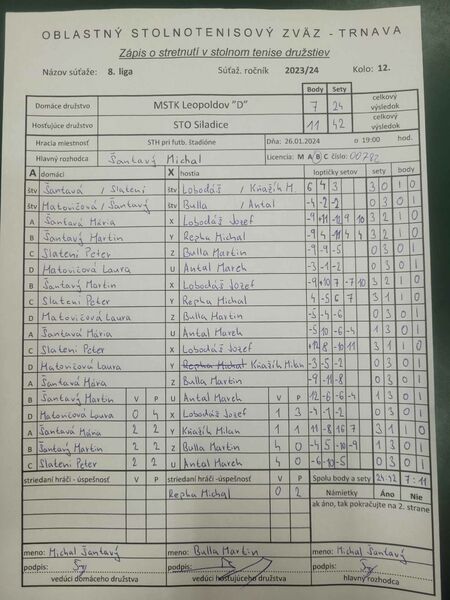 OBLASTNÝ STOLNOTENISOVÝ ZVÄZ - TRNAVA
Zápis o stretnutí v stolnom tenise družstiev
Názov súťaže: 8. liga Súťaž. ročník 2023/24 Kolo: 12.
Body Sety
Domáce družstvo MSTK Leopoldov "D" 7 24 celkový výsledok
Hosťujúce družstvo STO Siladice 11 42 celkový výsledok
Hracia miestnosť STH pri futb. štadióne Dňa: 26.01.2024 o 19:00 hod.
Hlavný rozhodca Šantavý Michal Licencia: M A B C číslo: 00782
A domáci X hostia loptičky setov sety body
štv Šantavá / Slatení štv Lobodáš / Kňažík M. 6 4 3 3 0 1 0
štv Matovičová / Šantavý štv Bulla / Antal -4 -2 -2 0 3 0 1
A Šantavá Mária X Lobodáš Jozef -9 +11 -12 9 10 3 2 1 0
B Šantavý Martin Y Repka Michal -9 4 -11 4 4 3 2 1 0
C Slatení Peter Z Bulla Martin -9 -9 -5 0 3 0 1
D Matovičová Laura U Antal Marek -3 -1 -2 0 3 0 1
B Šantavý Martin X Lobodáš Jozef -9 +10 7 -7 10 3 2 1 0
C Slatení Peter Y Repka Michal 4 -5 6 7 3 1 1 0
D Matovičová Laura Z Bulla Martin 0 3 0 1
A Šantavá Mária U Antal Marek -5 10 -6 -4 1 3 0 1
C Slatení Peter X Lobodáš Jozef +12 8 -10 11 3 1 1 0
D Matovičová Laura Y Repka Michal Kňažík Milan -3 -5 -2 0 3 0 1
A Šantavá Mária Z Bulla Martin -9 -11 -8 0 3 0 1
B Šantavý Martin V P U Antal Marek V P -12 -6 -6 -4 1 3 0 1
D Matovičová Laura 0 4 X Lobodáš Jozef 1 3 -4 -1 -2 0 3 0 1
A Šantavá Mária 2 2 Y Kňažík Milan 1 1 3 1 1 0
B Šantavý Martin 2 2 Z Bulla Martin 4 0 -4 5 -10 -9 1 3 0 1
C Slatení Peter 2 2 U Antal Marek 4 0 -6 -10 -5 0 3 0 1
striedaní hráči - úspešnosť V P striedaní hráči - úspešnosť V P Spolu body a sety 24:42 7:11
Repka Michal 0 2 Námietky Áno Nie
ak áno, tak pokračujte na 2. strane
meno: Michal Šantavý meno: Bulla Martin meno: Michal Šantavý
podpis: podpis: podpis:
vedúci domáceho družstva vedúci hosťujúceho družstva hlavný rozhodca